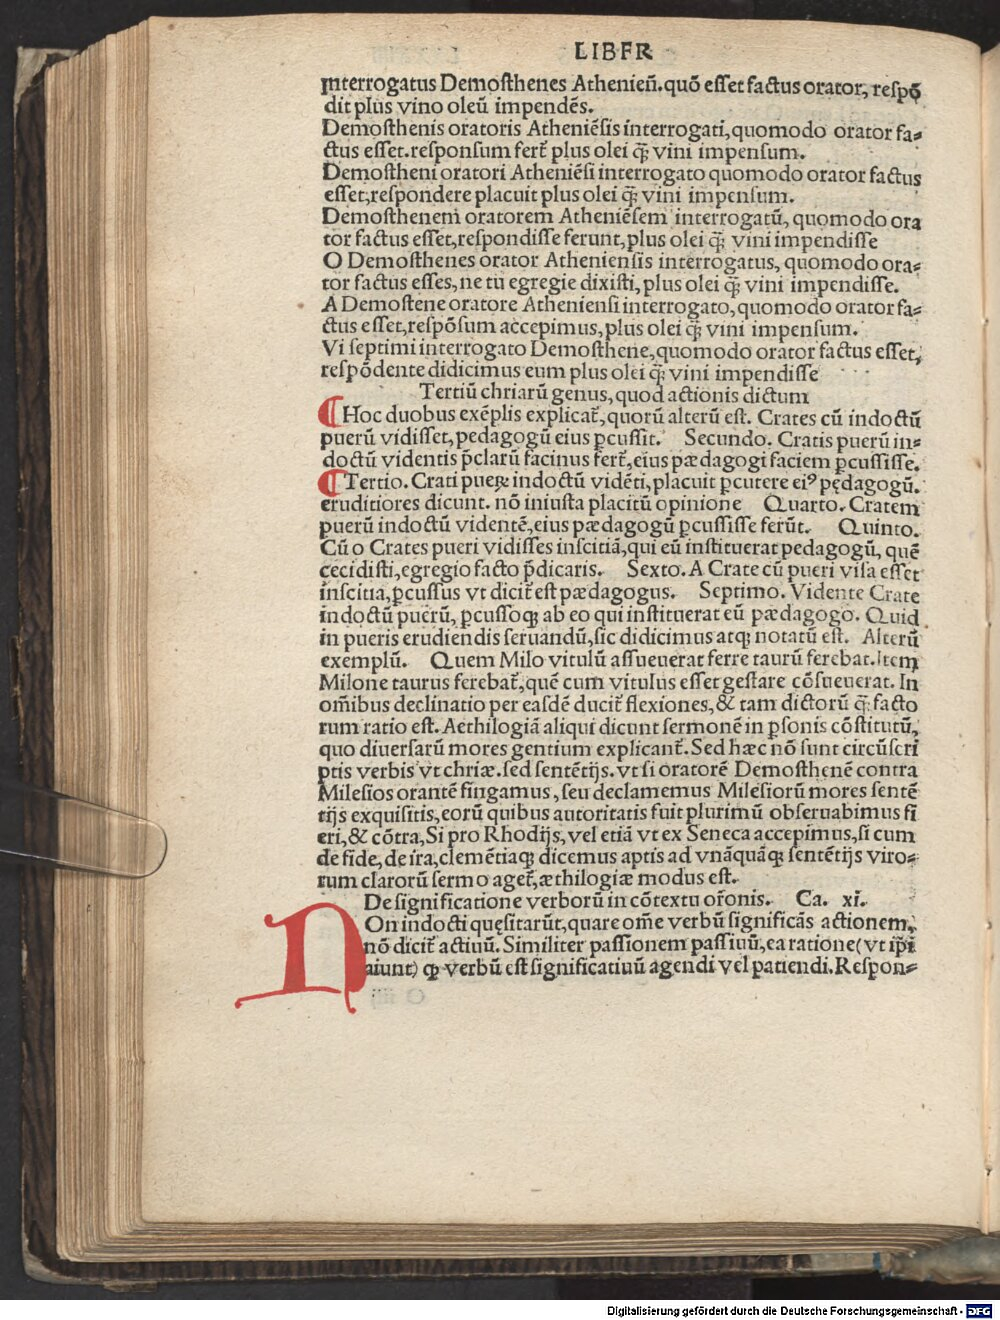 LIBER
Interrogatus Demosthenes Athenieñ. quō esset factus orator, respō
dit plus vino oleū impendēs.
Demosthenis oratoris Atheniēsis interrogati, quomodo orator fa⸗
ctus esset. responsum fert̄ plus olei q̄ȝ vini impensum.
Demostheni oratori Atheniēsi interrogato quomodo orator factus
esset, respondere placuit plus olei q̄ȝ vini impensum.
Demosthenem oratorem Atheniēsem interrogatū, quomodo ora
tor factus esset, respondisse ferunt, plus olei q̄ȝ vini impendisse
O Demosthenes orator Atheniensis interrogatus, quomodo ora⸗
tor factus esses, ne tu egregie dixisti, plus olei q̄ȝ vini impendisse.
A Demostene oratore Atheniensi interrogato, quomodo orator fa⸗
ctus esset, respōsum accepimus, plus olei q̄ȝ vini impensum.
Vi septimi interrogato Demosthene, quomodo orator factus esset,
respōdente didicimus eum plus olei q̄ȝ vini impendisse
Tertiū chriarū genus, quod actionis dictum
¶ Hoc duobus exēplis explicat̄, quorū alterū est. Crates cū indoctū
puerū vidisset, pedagogū eius ꝑcussit. Secundo. Cratis puerū in⸗
doctū videntis p̄clarū facinus fert̄, eius pædagogi faciem ꝑcussisse.
¶ Tertio. Crati pueꝝ indoctū vidēti, placuit ꝑcutere eiꝰ pędagogū.
eruditiores dicunt. nō iniusta placitū opinione Quarto. Cratem
puerū indoctū videntē, eius pædagogū ꝑcussisse ferūt. Quinto.
Cū o Crates pueri vidisses inscitiā, qui eū instituerat pedagogū, quē
cecidisti, egregio facto p̄dicaris. Sexto. A Crate cū pueri visa esset
inscitia, ꝑcussus vt dicit̄ est pædagogus. Septimo. Vidente Crate
indoctū puerū, ꝑcussoqȝ ab eo qui instituerat eū pædagogo. Quid
in pueris erudiendis seruandū, sic didicimus atqȝ notatū est. Alterū
exemplū. Quem Milo vitulū assueuerat ferre taurū ferebat. Item
Milone taurus ferebat̄, quē cum vitulus esset gestare cōsueuerat. In
om̄ibus declinatio per easdē ducit̄ flexiones, & tam dictorū q̄ȝ facto
rum ratio est. Aethilogiā aliqui dicunt sermonē in ꝑsonis cōstitutū,
quo diuersarū mores gentium explicant̄. Sed hæc nō sunt circūscri
ptis verbis vt chriæ. sed sentētijs. vt si oratorē Demosthenē contra
Milesios orantē fingamus, seu declamemus Milesiorū mores sentē
tijs exquisitis, eorū quibus autoritatis fuit plurimū obseruabimus fi
eri, & cōtra, Si pro Rhodijs, vel etiā vt ex Seneca accepimus, si cum
de fide, de ira, clemētiaqȝ dicemus aptis ad vnāquāqȝ sentētijs viro⸗
rum clarorū sermo aget̄, æthilogiæ modus est.
De significatione verborū in cōtextu or̄onis. Ca. xi.
NOn indocti quęsitarūt, quare om̄e verbū significās actionem,
nō dicit̄ actiuū. Similiter passionem passiuū, ea ratione (vt ip̄i
aiunt) ꝙ verbū est significatiuū agendi vel patiendi. Respon⸗
Digitalisierung gefördert durch die Deutsche Forschungsgemeinschaft - DFG